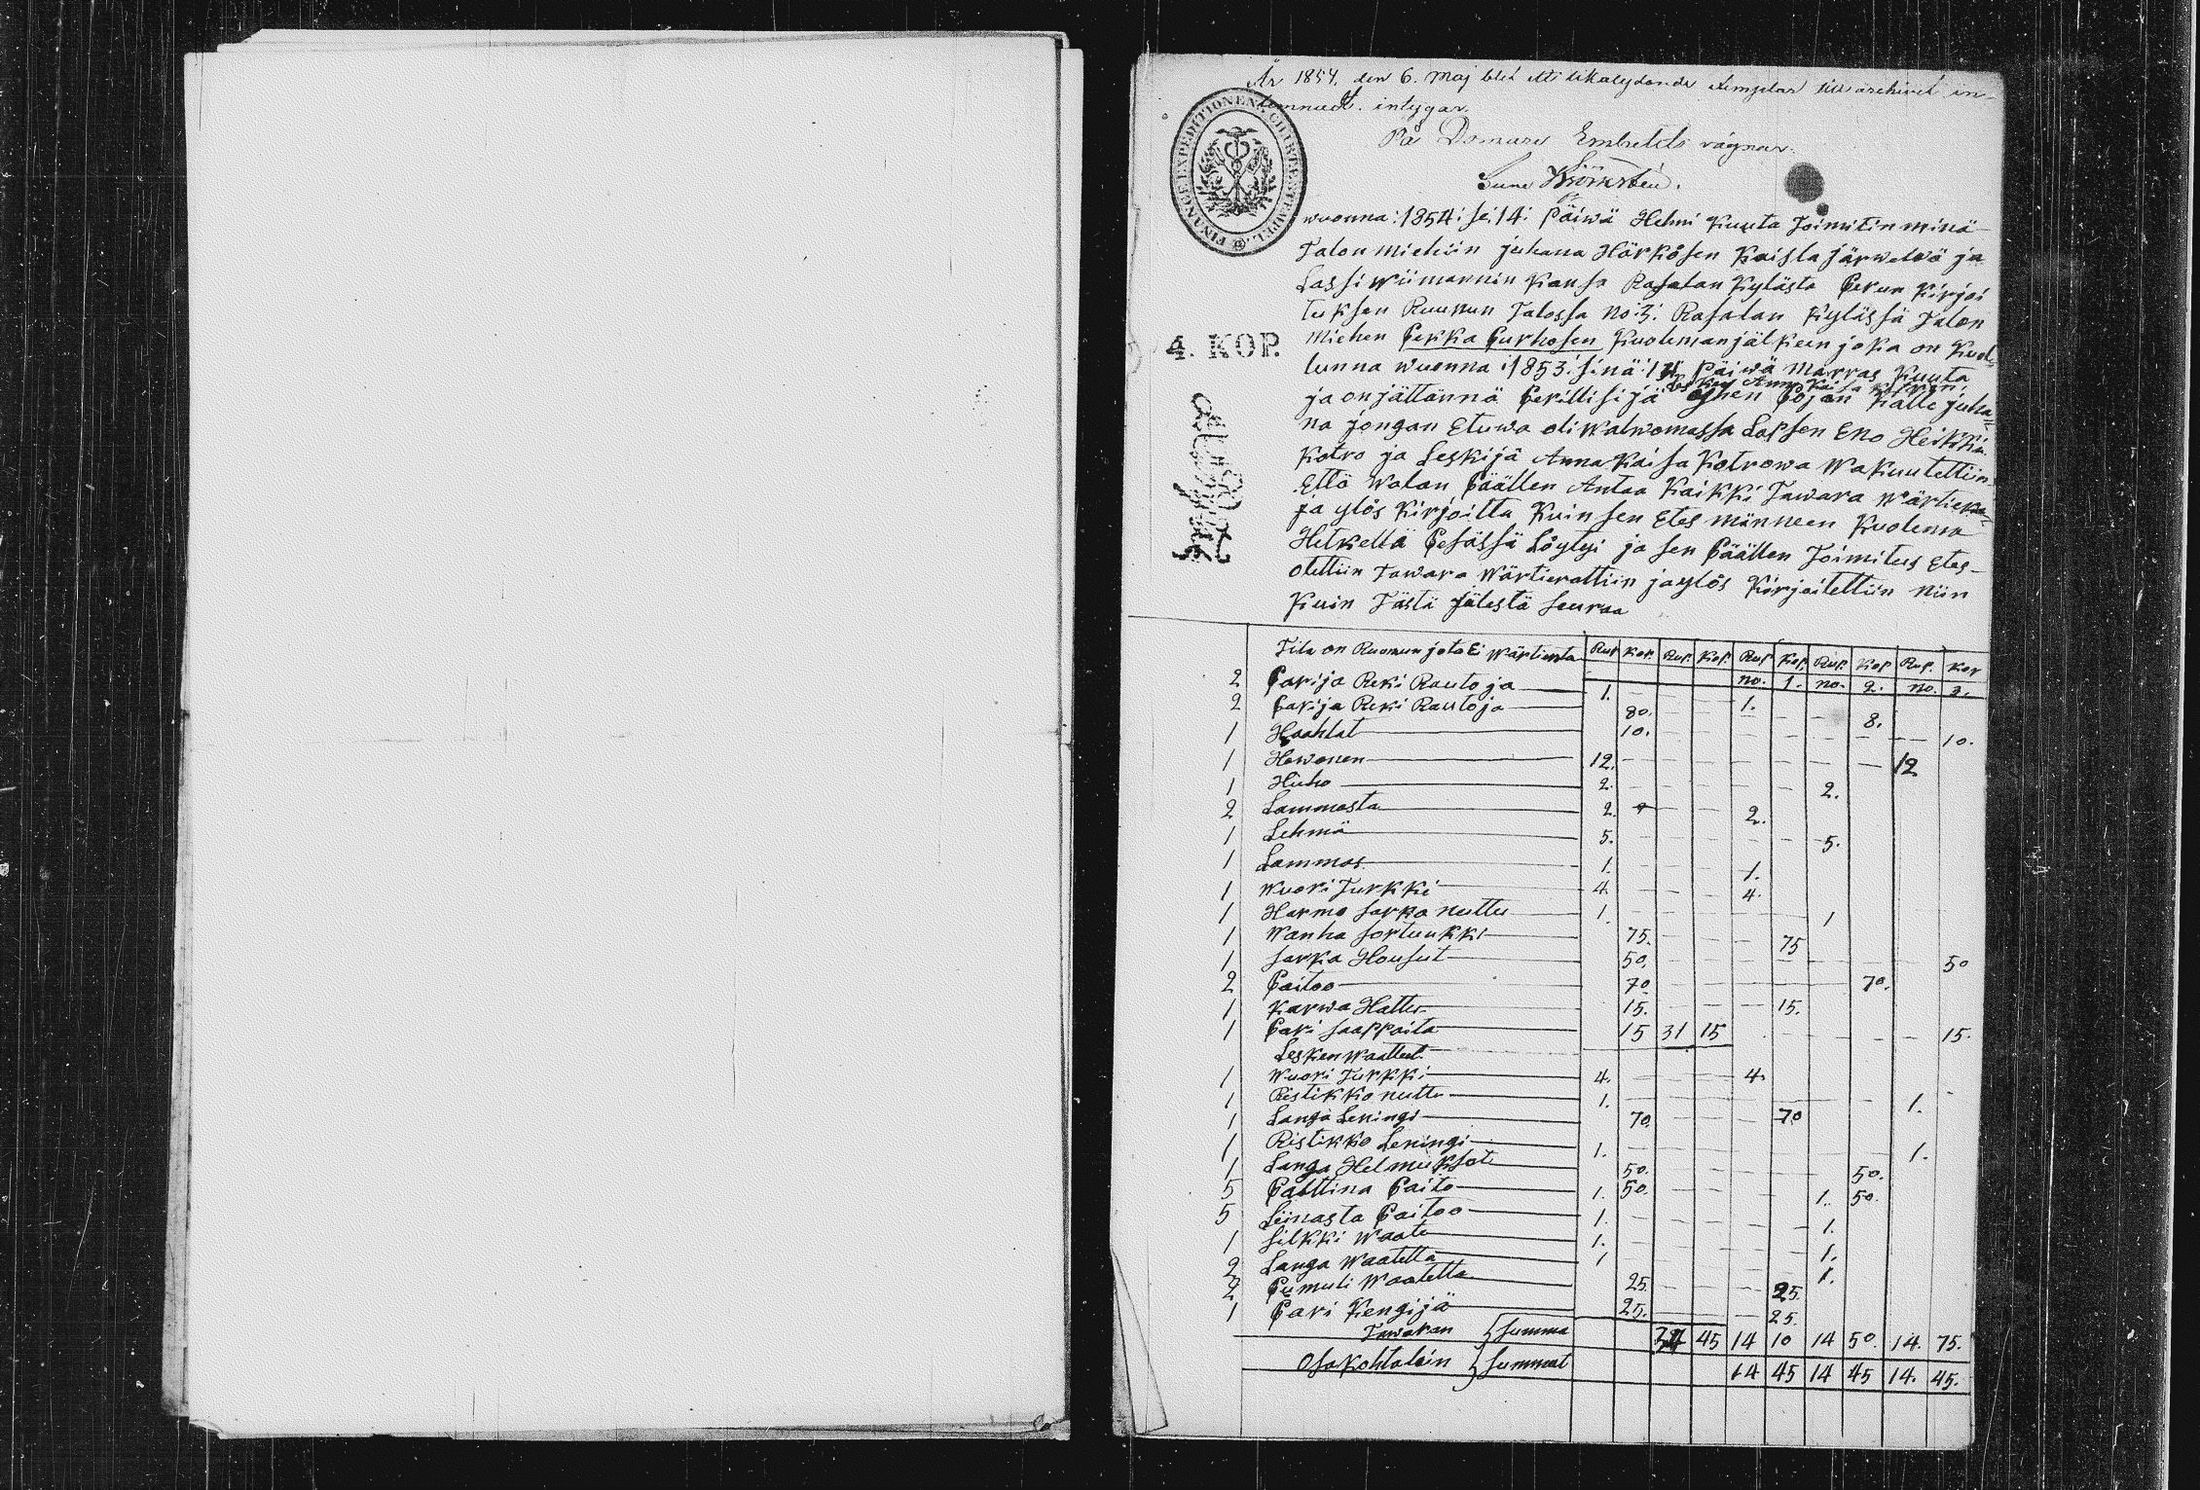 År 1854. den 6. Maj blef ett likalydande exemplar till archivet in-
lemnadt. intygar.
På Domare Embetets vägnar.
FINANCE EXPEDITIONEN. CHARTÆ STEMPEL.
wuonna: 1854: se: 14: Päiwä Helmi Kuuta Toimitin minä
Talon miehiin juhana Härkösen Kaislajärweltä ja
Lassi Wiimannin Kansa Rasalan Kylästä Perun Kirjoi
tuksen Ruunun Talossa No: 3: Rasalan Kylässä Talon
4. KOP.
miehen Pekka Purhosen Kuoleman jälkeen joka on Kuol-
lunna wuonna: 1853: sinä: Päiwä Marras Kuuta
Lesken Anna Kaisa
ja on jättännä Perillisijä yhen Pojan Kalle juha
na jongan Etuwa oli Walwomassa Lapsen Eno Heikki
Kotro ja Leskijä Anna Kaisa Kotrowa Wakuutettiin
Että Walan Päällen Antaa Kaikki Tawara Wärtiera
ja ylös Kirjoitta Kuin sen Etes männeen Kuolema
Hetkellä Pesässä Löytyi ja sen Päällen Toimitus Etes-
otettiin Tawara Wärtierattiin ja ylös Kirjoitettiin Niin
Kuin Tästä jälestä seuraa
Tila on Ruunun jota Ei Wärtierata Rup. Kop. Rup. Kop. Rup. Kop. Rup. Kop. Rup. Kop
no. 1. no. 2. no. 3.
2 Parija Reki Rautoja 1. 1.
2 Parija Reki Rautoja 80. 8.
1 Haahlat 10. 10.
1 Hewonen 12. 12
1 Hieho 2. 2.
2 Lammasta 2. 2.
1 Lehmä 5. 5.
1 Lammas 1. 1.
1 Wuori Turkki 4. 4.
1 Harmo sarka nuttu 1. 1
1 Wanha sortuukki 75. 75
1 sarka Housut 50. 50
2 Paitoo 70 70.
1 Karwa Hattu 15. 15.
1 Pari saappaita 15 31 15 15.
Lesken Waatteet
1 Wuori Turkki 4. 4.
1 Ristikko nuttu 1. 1.
1 Langa Leningi 70. 70
1 Ristikko Leningi 1. 1.
1 Langa 50. 50.
5 Palttina Paito 1. 50. 1. 50.
5 Liinasta Paitoo 1. 1.
1 silkki Waate 1. 1.
2 Langa Waatetta 1 1.
2 Pumuli Waatetta 25. 25.
1 Pari Kengijä 25. 25.
Tawaran summa 45 14 10 14 50. 14. 75.
Osakohtalain summat 14 45 14 45 14. 45.